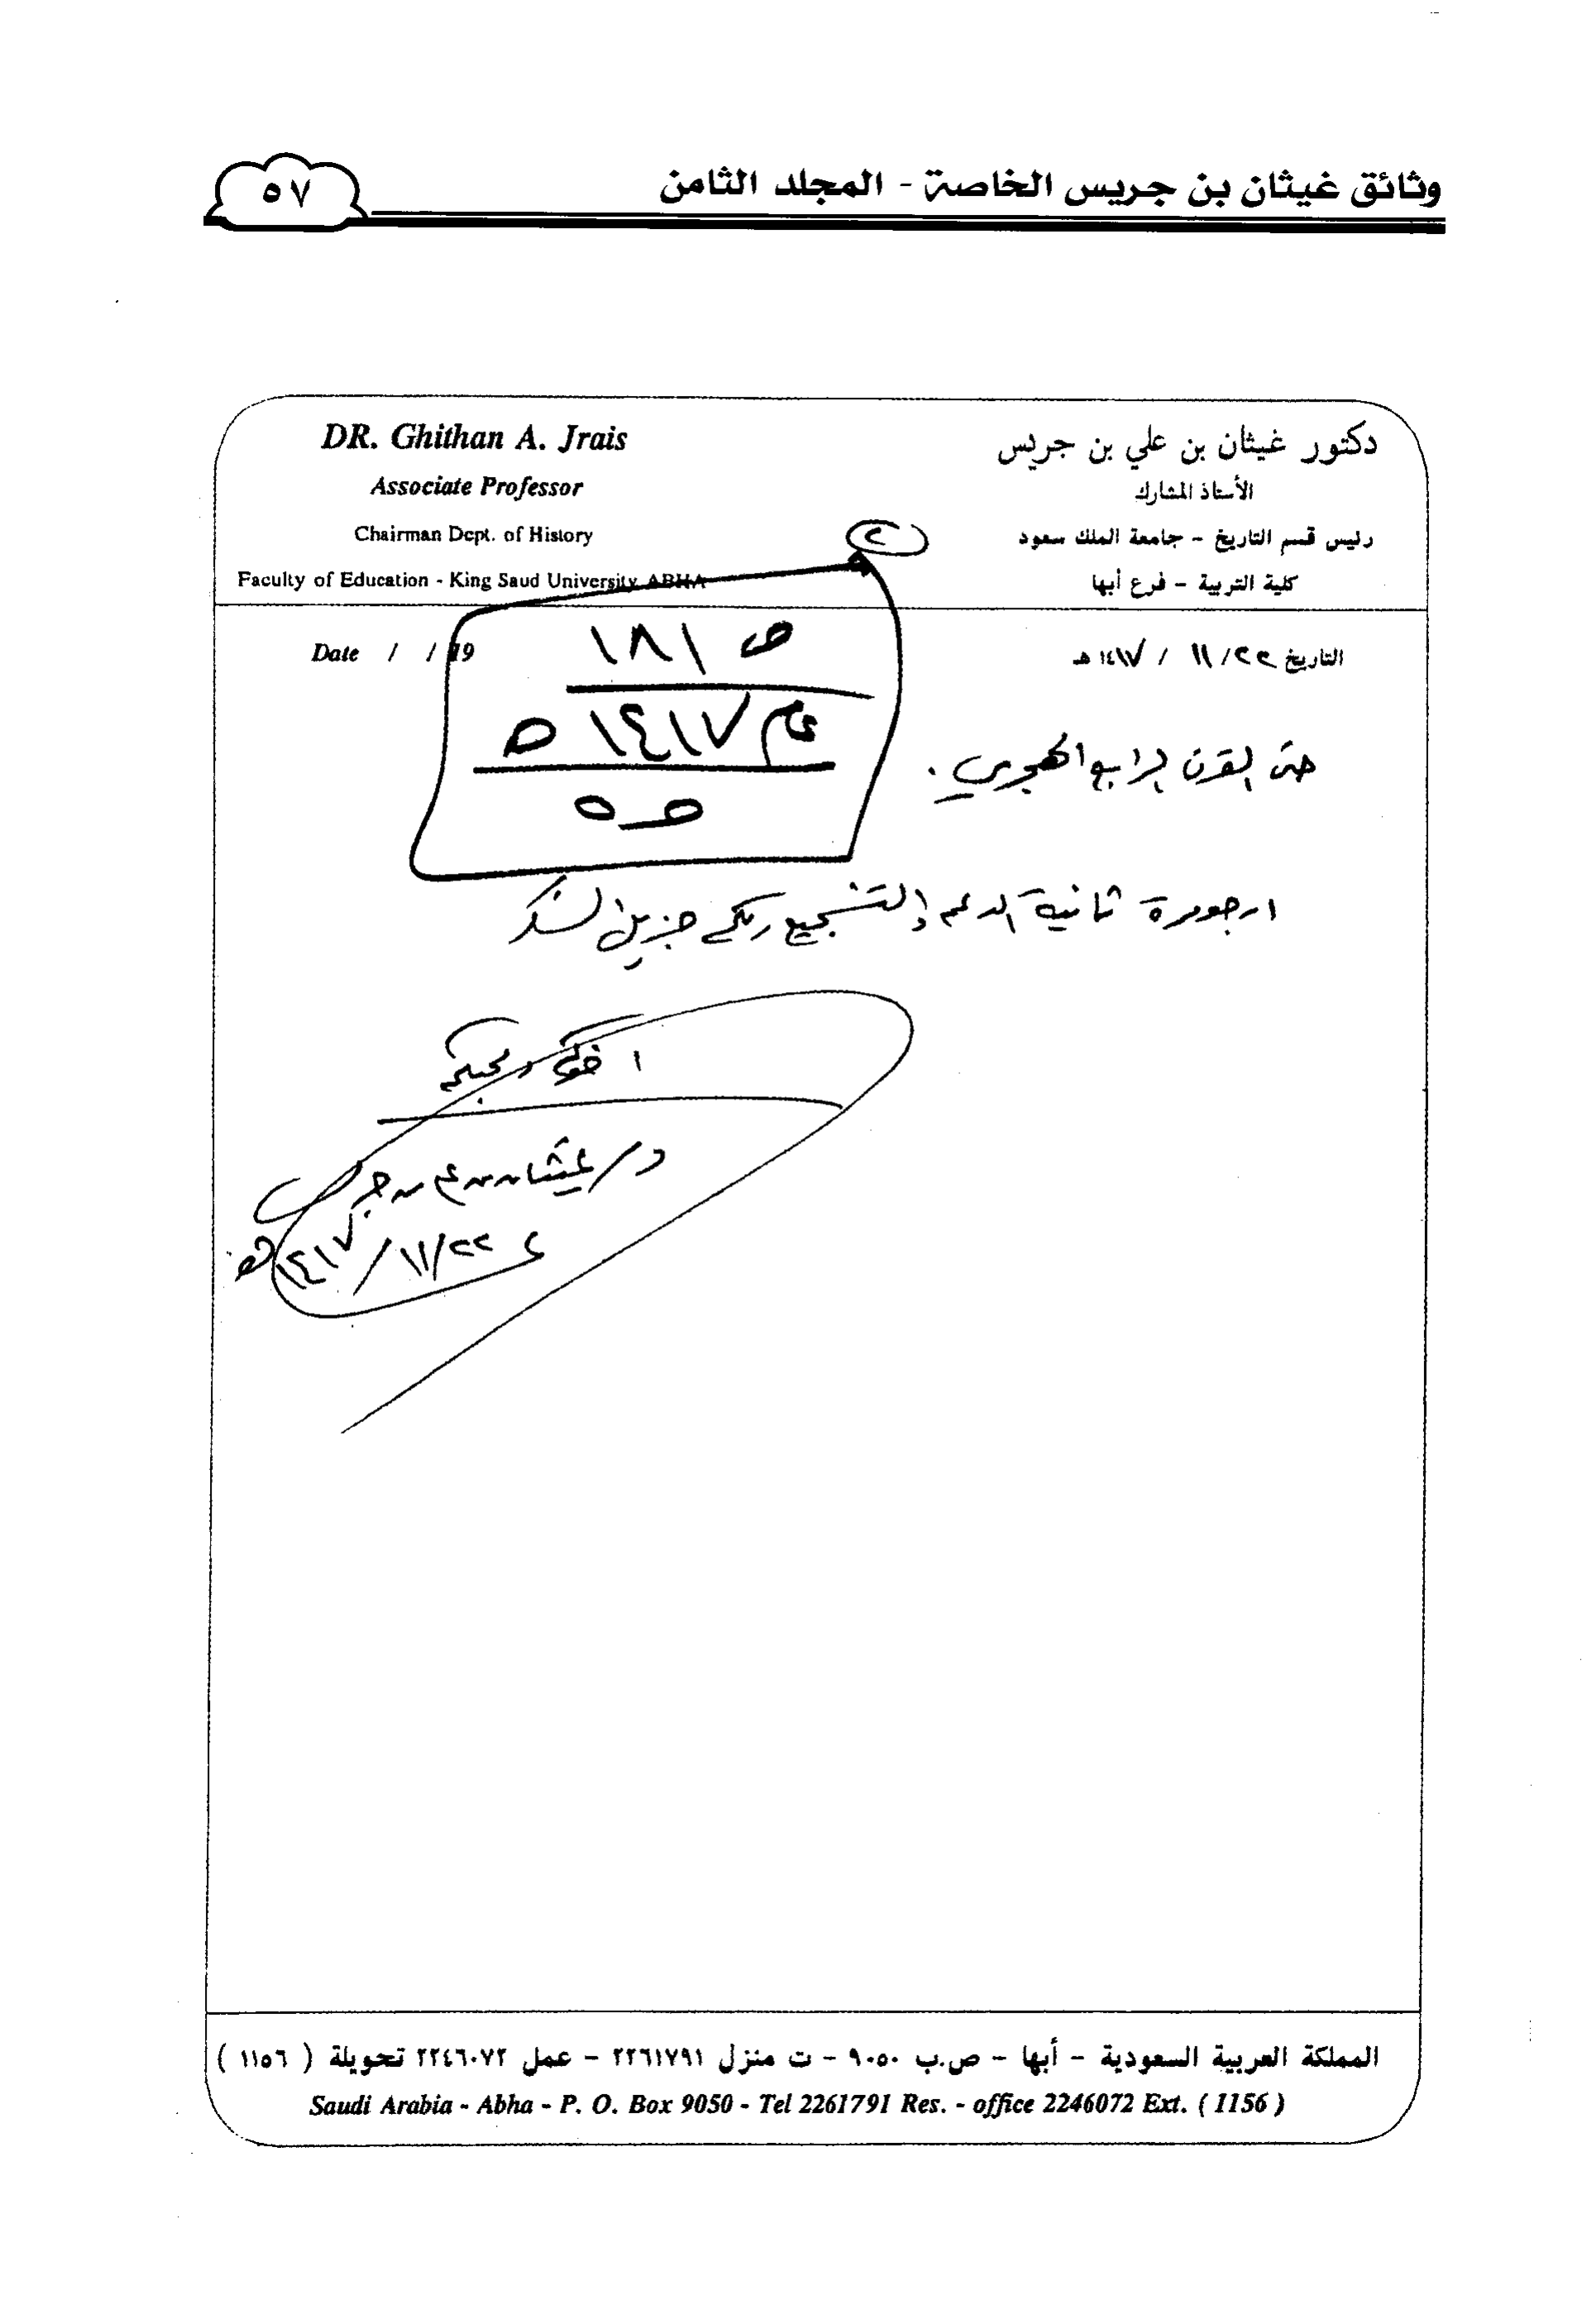 وثائق غيثان بن جريس الخاصة - المجلد الثامن
٥٧
دكتور غيثان بن علي بن جريس
الأستاذ المشارك
رئيس قسم التاريخ - جامعة الملك سعود
كلية التربية - فرع أبها
DR. Ghithan A. Jrais
Associate Professor
Chairman Dept. of History
Faculty of Education - King Saud University ABHA
٢
التاريخ ٢٢/ ١١ / ١٤١٧ هـ
Date / / 19
ص ١٨١
عام ١٤١٧ ه
حتى القرن الرابع الهجري .
ارجو مرة ثانية الدعم والتشجيع ولكم جزيل الشكر
اخوكم ومحبكم
د/ غيثان بن علي بن جريس
٢٢/١١/١٤١٧هـ
المملكة العربية السعودية - أبها - ص.ب ٩٠٥٠ - ت منزل ٢٢٦١٧٩١ - عمل ٢٢٤٦٠٧٢ تحويلة ( ١١٥٦ )
Saudi Arabia - Abha - P. O. Box 9050 - Tel 2261791 Res. - office 2246072 Ext. ( 1156 )